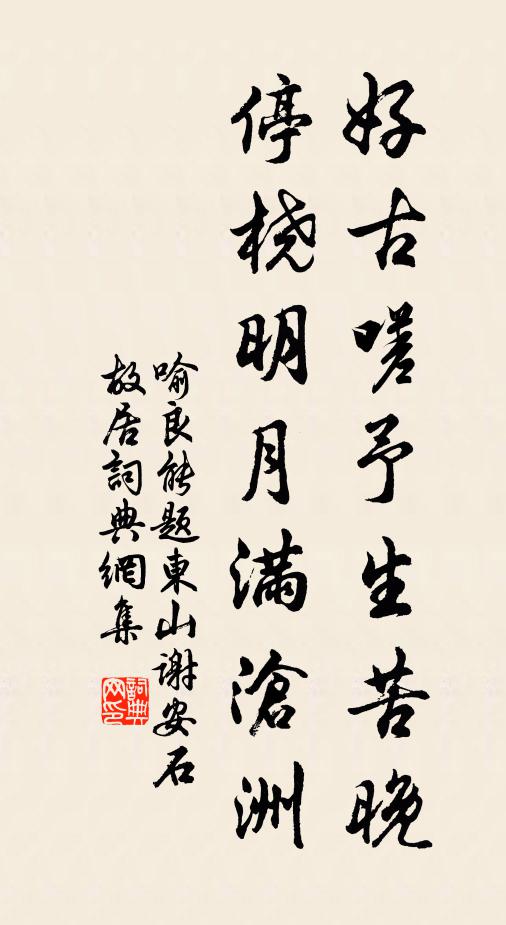 好古嗟予生苦晚
停桡明月满滄洲
喻良能题東山谢安石
故居詞典網集
詞典网印